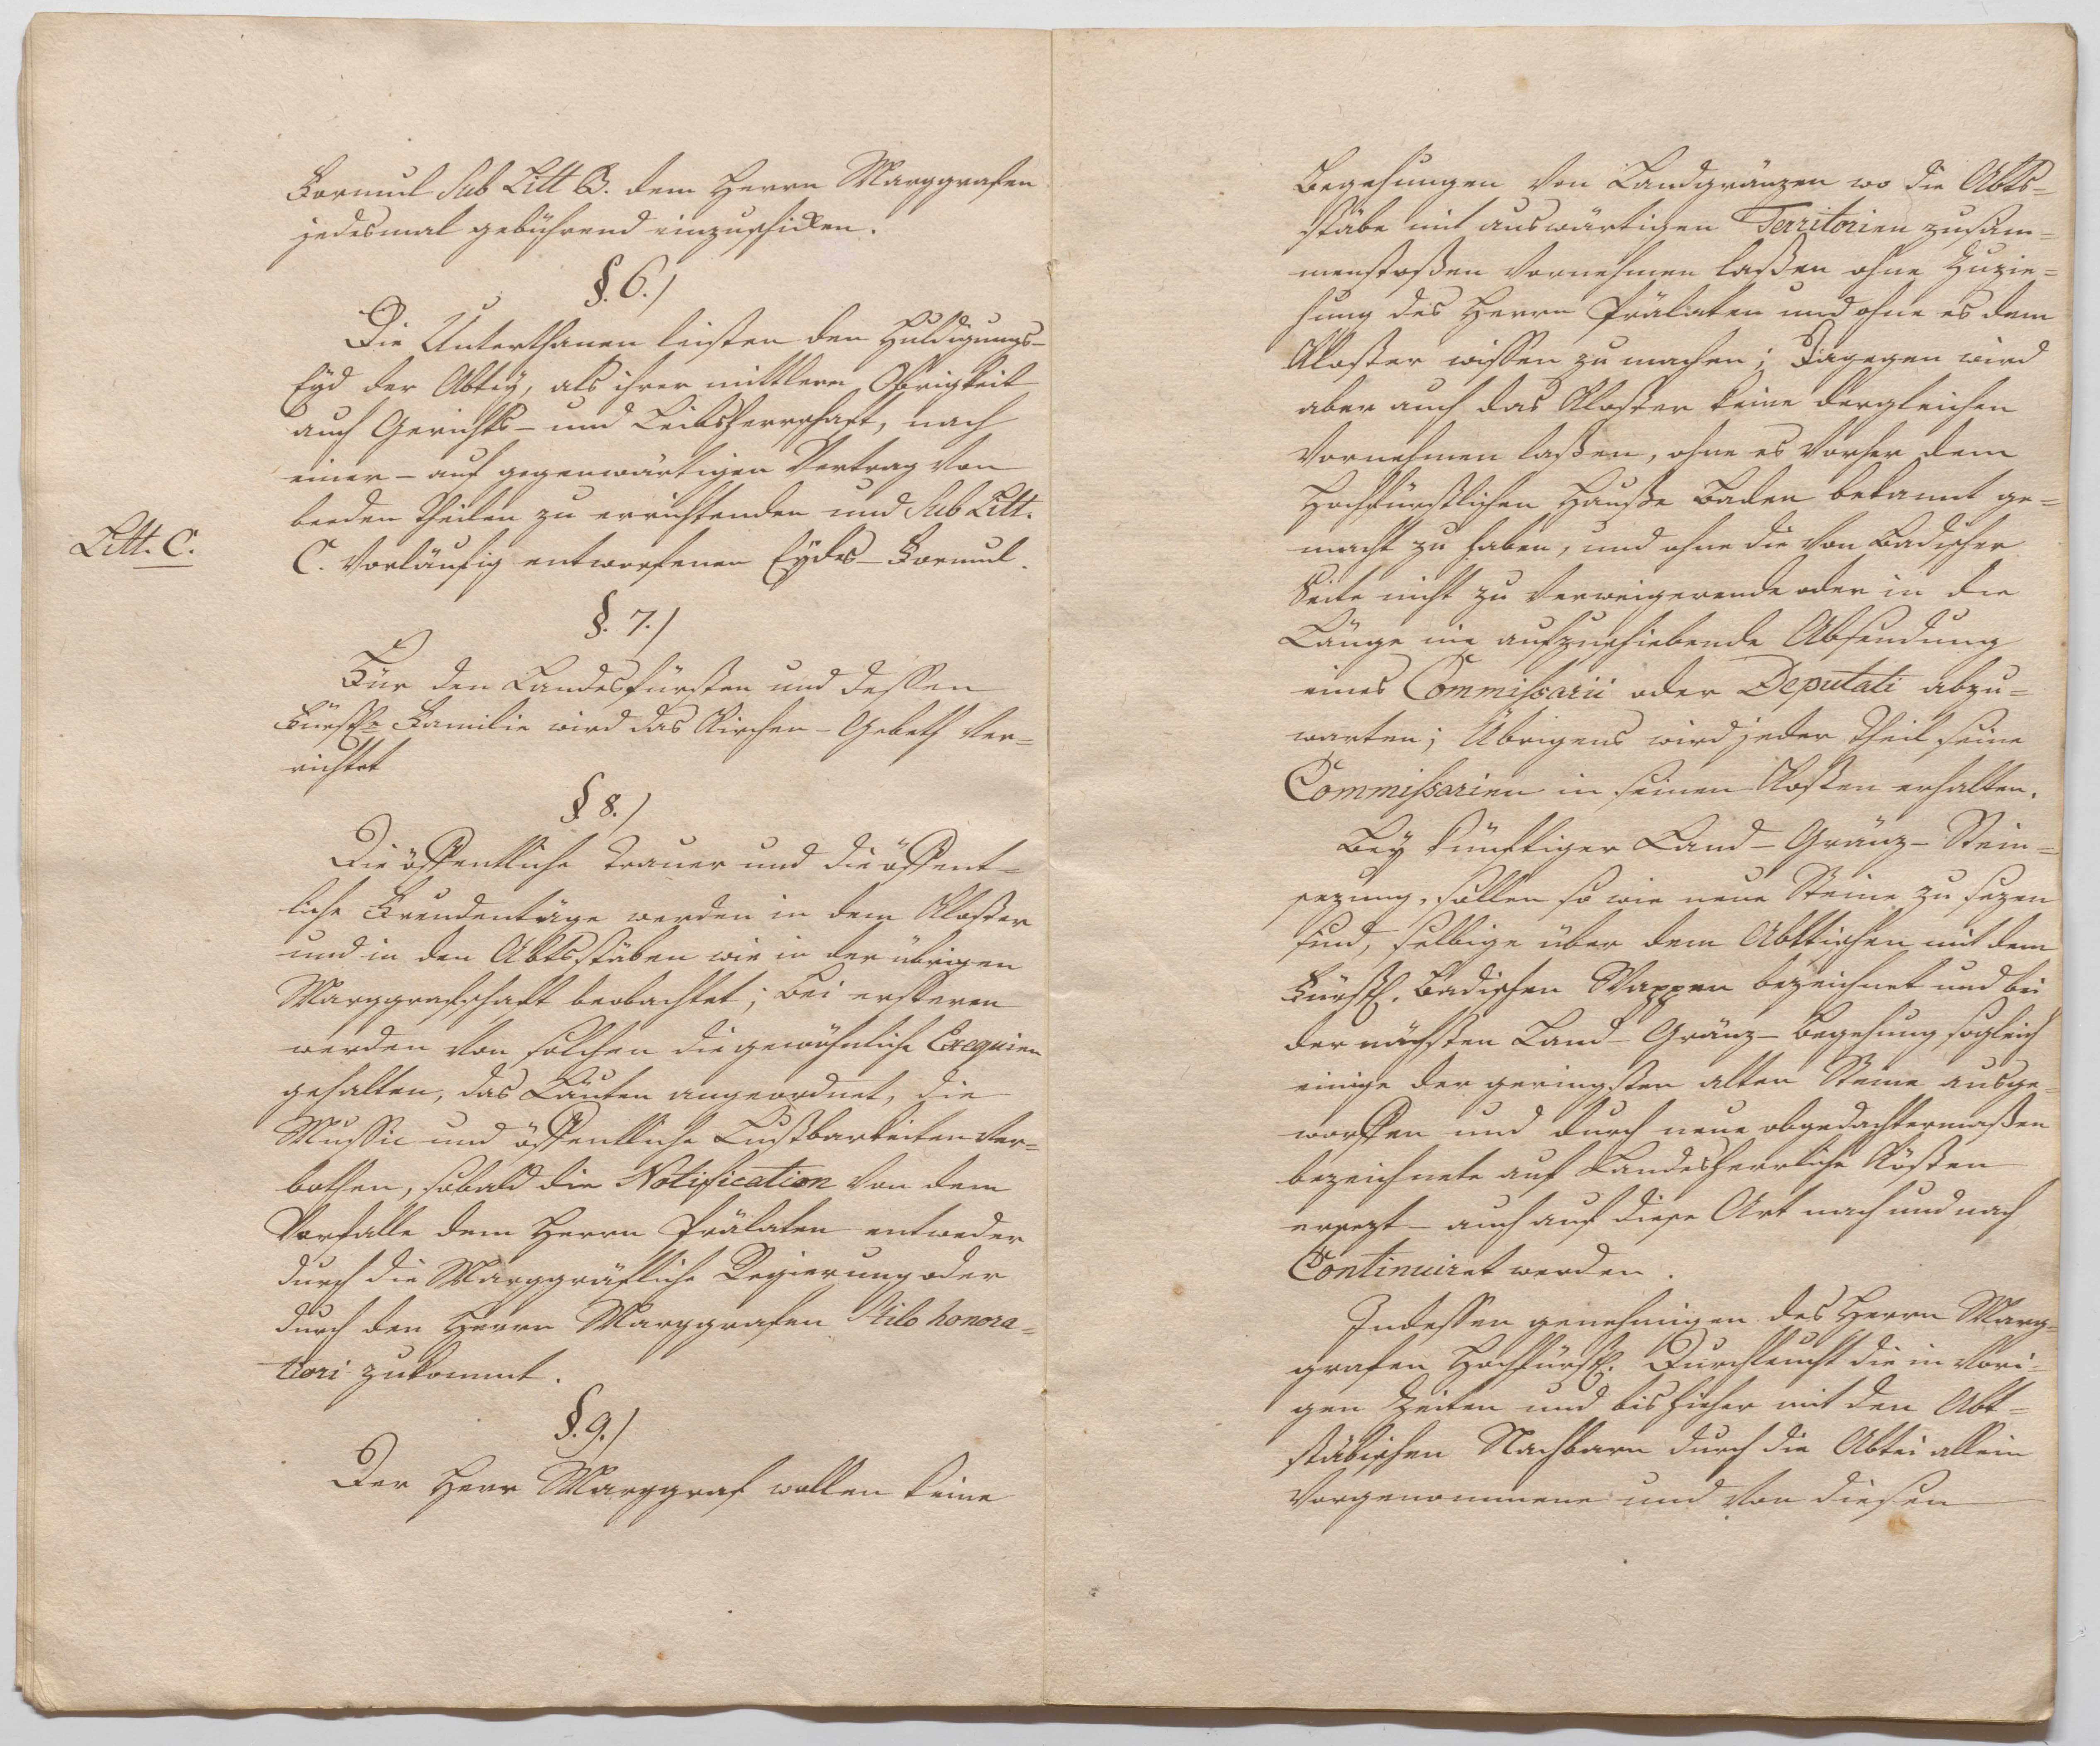 Formul Sub Litt B. dem Herrn Marggrafen
jedesmal gebührend einzuschicken.
§. 6.)
Die Unterthanen leisten den Huldigungs-
Eyd der Abtey, als ihrer mittlern Obrigkeit
auch Gerichts- und Leibsherrschaft, nach
einer - auf gegenwärtigen Vertrag von
beeden Theilen zu errichtenden und Sub Litt.
Litt. C.
C. vorläufig entworfenen Eydes-Formul.
§. 7.)
Für den Landesfürsten und dessen
Fürstl. Familie wird das Kirchen-Gebeth ver=
richtet
§ 8.)
Die öffentliche Trauer und die öffent=
liche Freudentäge werden in dem Kloster
und in den Abtsstäben wie in der übrigen
Marggrafschaft beobachtet; bei ersteren
werden von solchen die gewöhnliche Exequien
gehalten, das Läuten angeordnet, die
Mussic und öffentliche Lustbarkeiten ver=
bothen, sobald die Notification von dem
Vorfalle dem Herrn Prälaten entweder
durch die Marggräfliche Regierung oder
durch den Herrn Marggrafen Stilo honora=
tiori zukommt.
§. 9.)
Der Herr Marggraf wollen keine
Begehungen von Landgränzen wo die Abts=
stäbe mit auswärtigen Territorien zusam=
menstoßen vornehmen laßen ohne Zuzie=
hung des Herrn Prälaten und ohne es dem
Kloster wissen zu machen; Dagegen wird
aber auch das Kloster keine dergleichen
vornehmen laßen, ohne es vorher dem
Hochfürstlichen Hauße Baden bekannt ge=
macht zu haben, und ohne die von Badischer
Seite nicht zu verweigerende oder in die
Länge nie aufzuschiebende Absendung
eines Commissarii oder Deputati abzu=
warten; Übrigens wird jeder Theil seine
Commissarien in seinen Kosten erhalten.
Bey künftiger Land-Gränz-Stein=
sezung, sollen so wie neue Steine zu sezen
sind, selbige über dem Abttischen mit dem
Fürstl. Badischen Wappen bezeichnet und bei
der nächsten Land-Gränz-Begehung sogleich
einige der geringsten alten Steine ausge=
worffen und durch neue obgedachtermaßen
bezeichnete auf Landesherrliche Kösten
ersezt - auch auf diese Art nach und nach
Continuiret werden.
Indessen genehmigen des Herrn Marg=
grafen Hochfürstl. Durchleucht die in vori=
gen Zeiten und bishieher mit den Abt=
stäbischen Nachbarn durch die Abtei allein
vorgenommene und von diesen